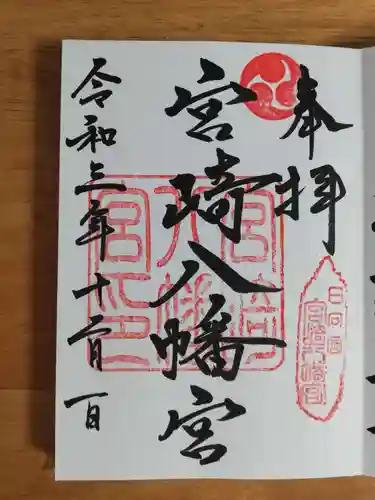 奉拝
日向国
宮崎鎮座
宮崎八幡宮
宮崎八幡宮印
令和三年十二月一日